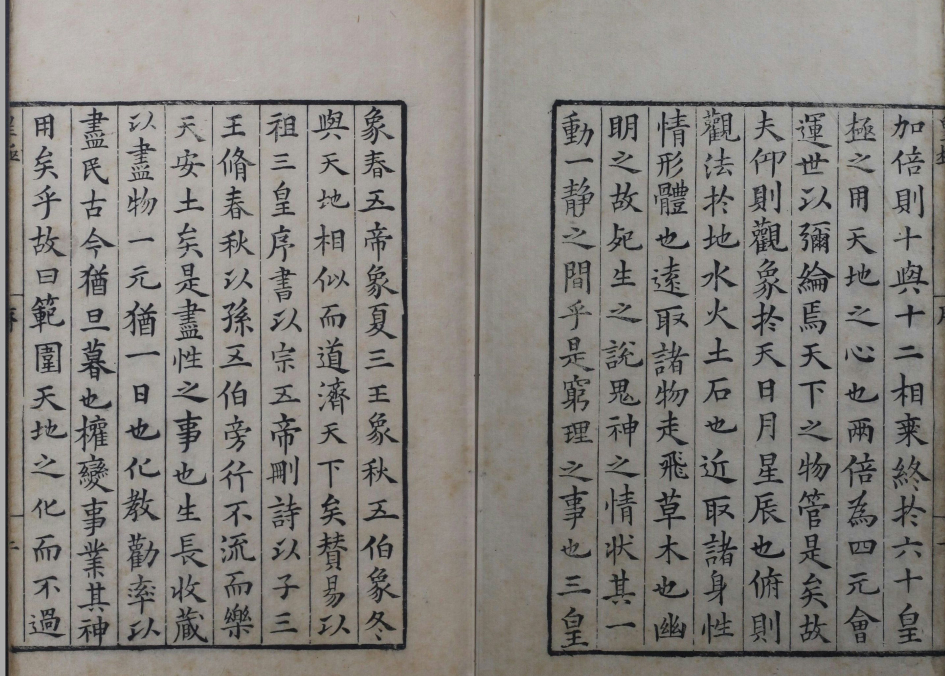 加倍則十與十二相乗終扵六十皇
極之用天地之心也兩倍為四元會
運世以彌綸焉天下之物管是矣故
夫仰則觀象扵天日月星辰也俯則
觀法扵地水火土石也近取諸身性
情形體也遠取諸物走飛草木也幽
明之故死生之說鬼神之情状其一
動一靜之間乎是窮理之事也三皇
象春五帝象夏三王象秋五伯象冬
與天地相似而道濟天下矣賛易以
祖三皇序書以宗五帝刪詩以子三
王脩春秋以孫五伯旁行不流而樂
天安土矣是盡性之事也生長收藏
以盡物一元猶一日也化教勸率以
盡民古今猶旦暮也權變事業其神
用矣乎故曰範圍天地之化而不過